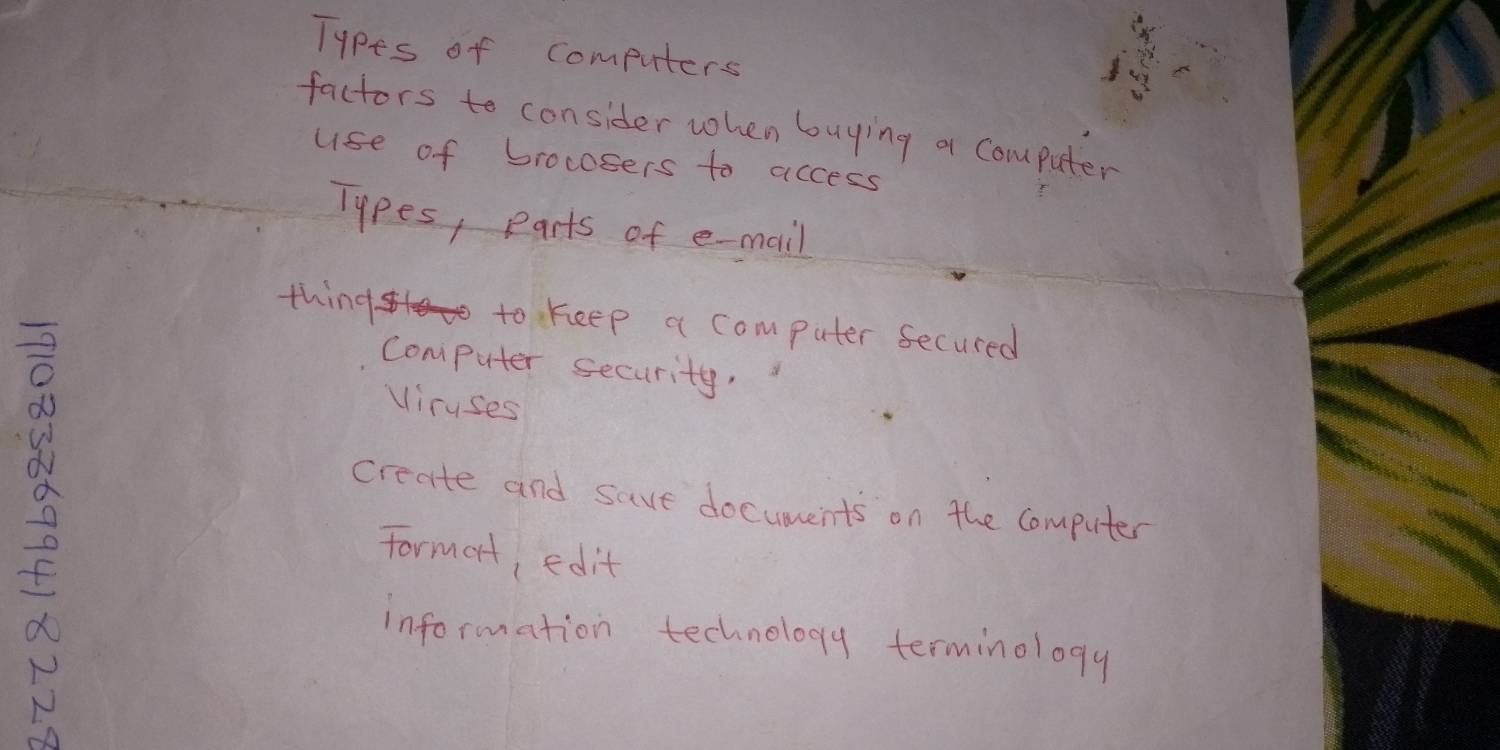 Types of computers
factors to consider when buying a computer
use of browsers to access
Types, parts of e-mail
things to keep a computer secured
Computer security.
Viruses
Create and save documents on the computer
Format, edit
information technology terminology
191083869941 8 2228